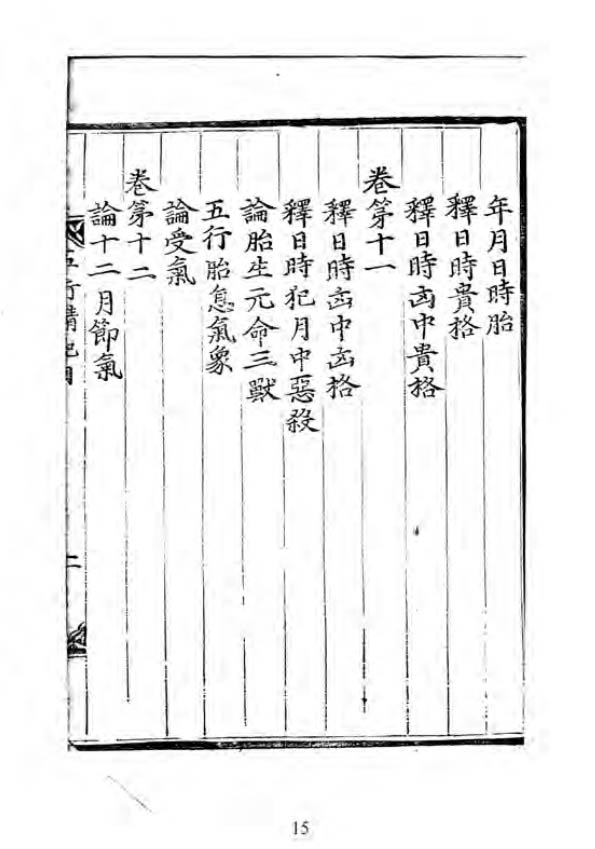 年月日時胎
釋日時貴格
釋日時㐫中貴格
卷第十一
釋日時㐫中㐫格
釋日時犯月中惡殺
論胎生元命三獸
五行胎息氣象
論受氣
卷第十二
論十二月節氣
五行精紀目
二
15